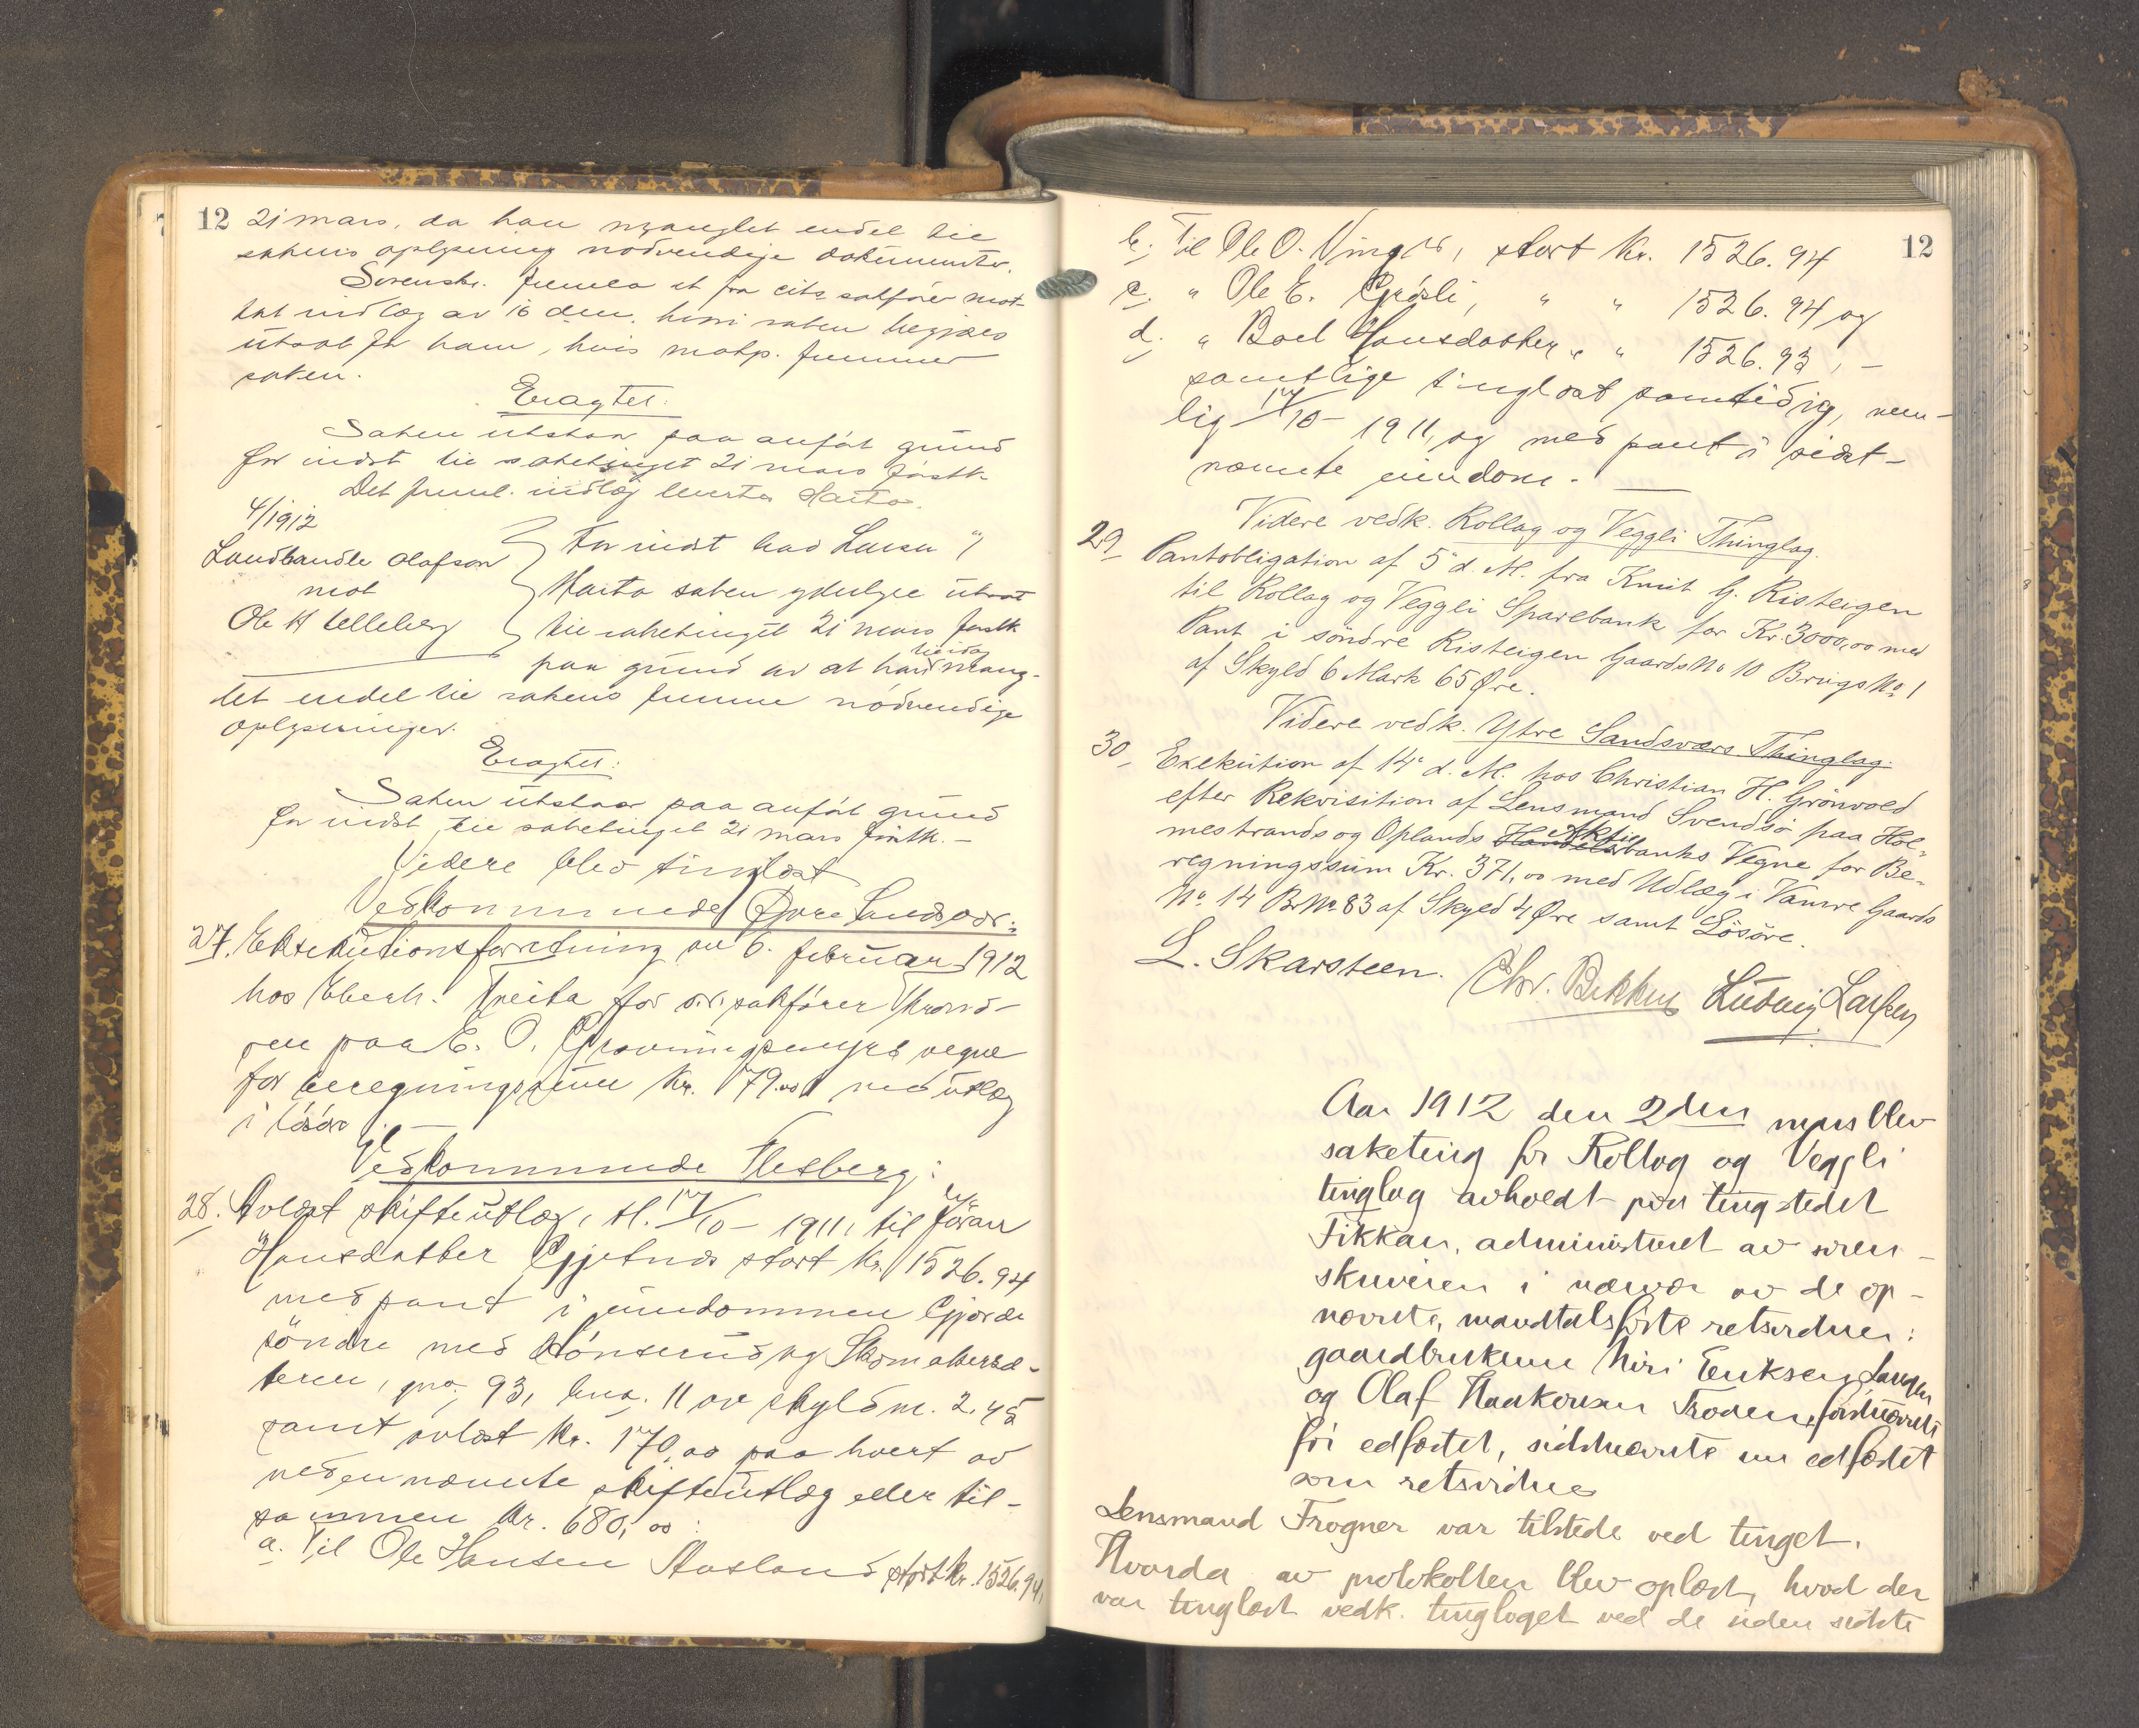 12
21 mars, da han manglet endel til
sakens oplysning nødvendige dokumenter.
Sorenskr. freml. et fra cits. sakfører mot-
tat indlæg av 16 dm. hvori saken begjæres
utsat for ham, hvis motp. fremmer
saken.
Eragtet:
Saken utstaar paa anført grund
for indst. til saketinget 21 mars førstk.
Det freml. indlæg levertes Harto.
4/1912
Landhandler Olafson
mot
Ole H Lelleberg
For indst. bad Larsen v/
Harto saken yderligere utsat
til saketinget 21 mars førstk
paa grund av at han endda mang-
let endel til sakens fremme nødvendige
oplysninger.
Eragtet:
Saken utstaar paa anført grund
for indst. til saketinget 21 mars førstk. –
Videre blev tinglæst
Vedkommende Øvre Sandsvær:
27. Eksekutionsforretning av 6. februar 1912
hos Eberh. Tveita for o.r.sakfører
paa E. O. vegne
for beregningssum Kr. 79.00 med utlæg
i løsøre
Vedkommende Flesberg:
28. Avlæst skifteutlæg, tl. 17/10 – 1911, til Jøran
Hansdatter Gjetnes stort kr. 1526.94
med pant i eiendommen Gjorde
söndre med Hönserud og Skomakersæ-
teren, gno. 93, bno. 11 av skyld m. 2.45
samt avlæst Kr. 170,00 paa hvert av
nedennævnte skifteutlæg eller til-
sammen Kr. 680,00:
a. Til Ole Hansen Aasland stort kr. 1526.94,
12
b. Til Ole O. Vinger, stort kr. 1526.94
c. " Ole E. Grøsli, " " 1526.94 og
d. " Boel Hansdatter " " 1526.93, –
samtlige tinglæst samtidig, nem-
lig 17/10 – 1911, og med pant i sidst-
nævnte eiendom.
Videre vedk. Rollag og Veggli Thinglag.
29 Pantobligation af 5' d. M. fra Knut G. Risteigen
til Rollag og Veggli Sparebank for Kr. 3000,00 med
Pant i söndre Risteigen Gaards No 10 Brugs No 1
af Skyld 6 Mark 65 Øre.
Videre vedk. Ytre Sandsværs Thinglag.
30 Exekution af 14' d. M. hos Christian H. Grönvold
efter Rekvisition af Lensmand Svendsö paa Hol-
mestrands og Oplands Handels Aktiebanks Vegne for Be-
regningssum Kr. 371,00 med Udlæg i Vamre Gaards
No 14 Br No 83 af Skyld 4 Øre samt Lösöre.
L. Skarsteen. Chr. Bekkus Ludvig Larsen
Aar 1912 den 2den mars blev
saketing for Rollag og Veggli
tinglag avholdt paa tingstedet
Fikkan, administreret av soren-
skriveren i nærvær av de op-
nævnte, mandtalsførte retsvidner:
gaardbrukerne Kiri Eriksen Langen
og Olaf Haakensen Traaen, førstnævnte
før edfæstet, sidstnævnte nu edfæstet
som retsvidne
Lensmand Frogner var tilstede ved tinget.
Hvorda av protokollen blev oplæst, hvad der
var tinglæst vedk. tinglaget ved de siden sidste